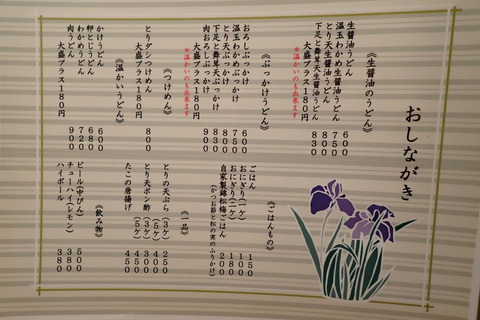 おしながき
《生醤油のうどん》
生醤油うどん 600
温玉わかめ生醤油うどん 750
とり天生醤油うどん 800
下足と舞茸天生醤油うどん 830
大盛プラス180円
＊温かいのも出来ます
《ぶっかけうどん》
おろしぶっかけ 600
温玉わかめぶっかけ 750
とり天ぶっかけ 800
下足と舞茸天ぶっかけ 830
肉おろしぶっかけ 900
大盛プラス180円
＊温かいのも出来ます
《つけめん》
とりダシつけめん 800
大盛プラス180円
《温かいうどん》
かけうどん 600
卵とじうどん 680
わかめうどん 720
肉うどん 900
大盛プラス180円
《ごはんもの》
ごはん 150
おにぎり(一ケ) 100
おにぎり(二ケ) 180
自家製錦松梅ごはん 200
(かつお節と松の実のふりかけ)
《一品》
とりの天ぷら(3ケ) 250
(5ケ) 400
とり天ポン酢(3ケ) 300
(5ケ) 450
たこの唐揚げ 400
《飲み物》
ビール(中びん) 500
チューハイ(レモン) 380
ハイボール 380